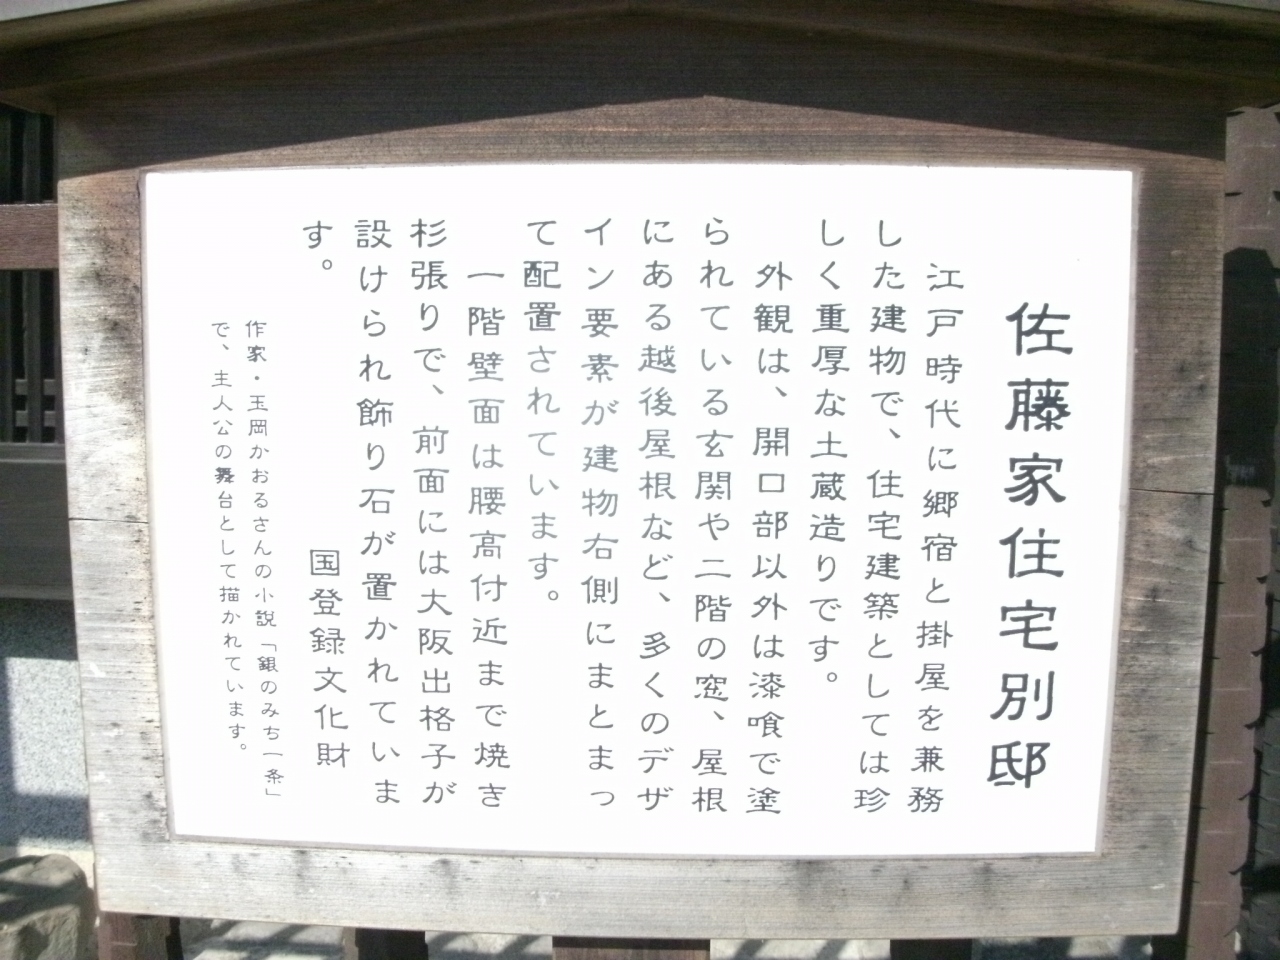 佐藤家住宅別邸
江戸時代に郷宿と掛屋を兼務
した建物で、住宅建築としては珍
しく重厚な土蔵造りです。
外観は、開口部以外は漆喰で塗
られている玄関や二階の窓、屋根
にある越後屋根など、多くのデザ
イン要素が建物右側にまとまっ
て配置されています。
一階壁面は腰高付近まで焼き
杉張りで、前面には大阪出格子が
設けられ飾り石が置かれていま
す。
国登録文化財
作家・玉岡かおるさんの小説「銀のみち一条」
で、主人公の舞台として描かれています。